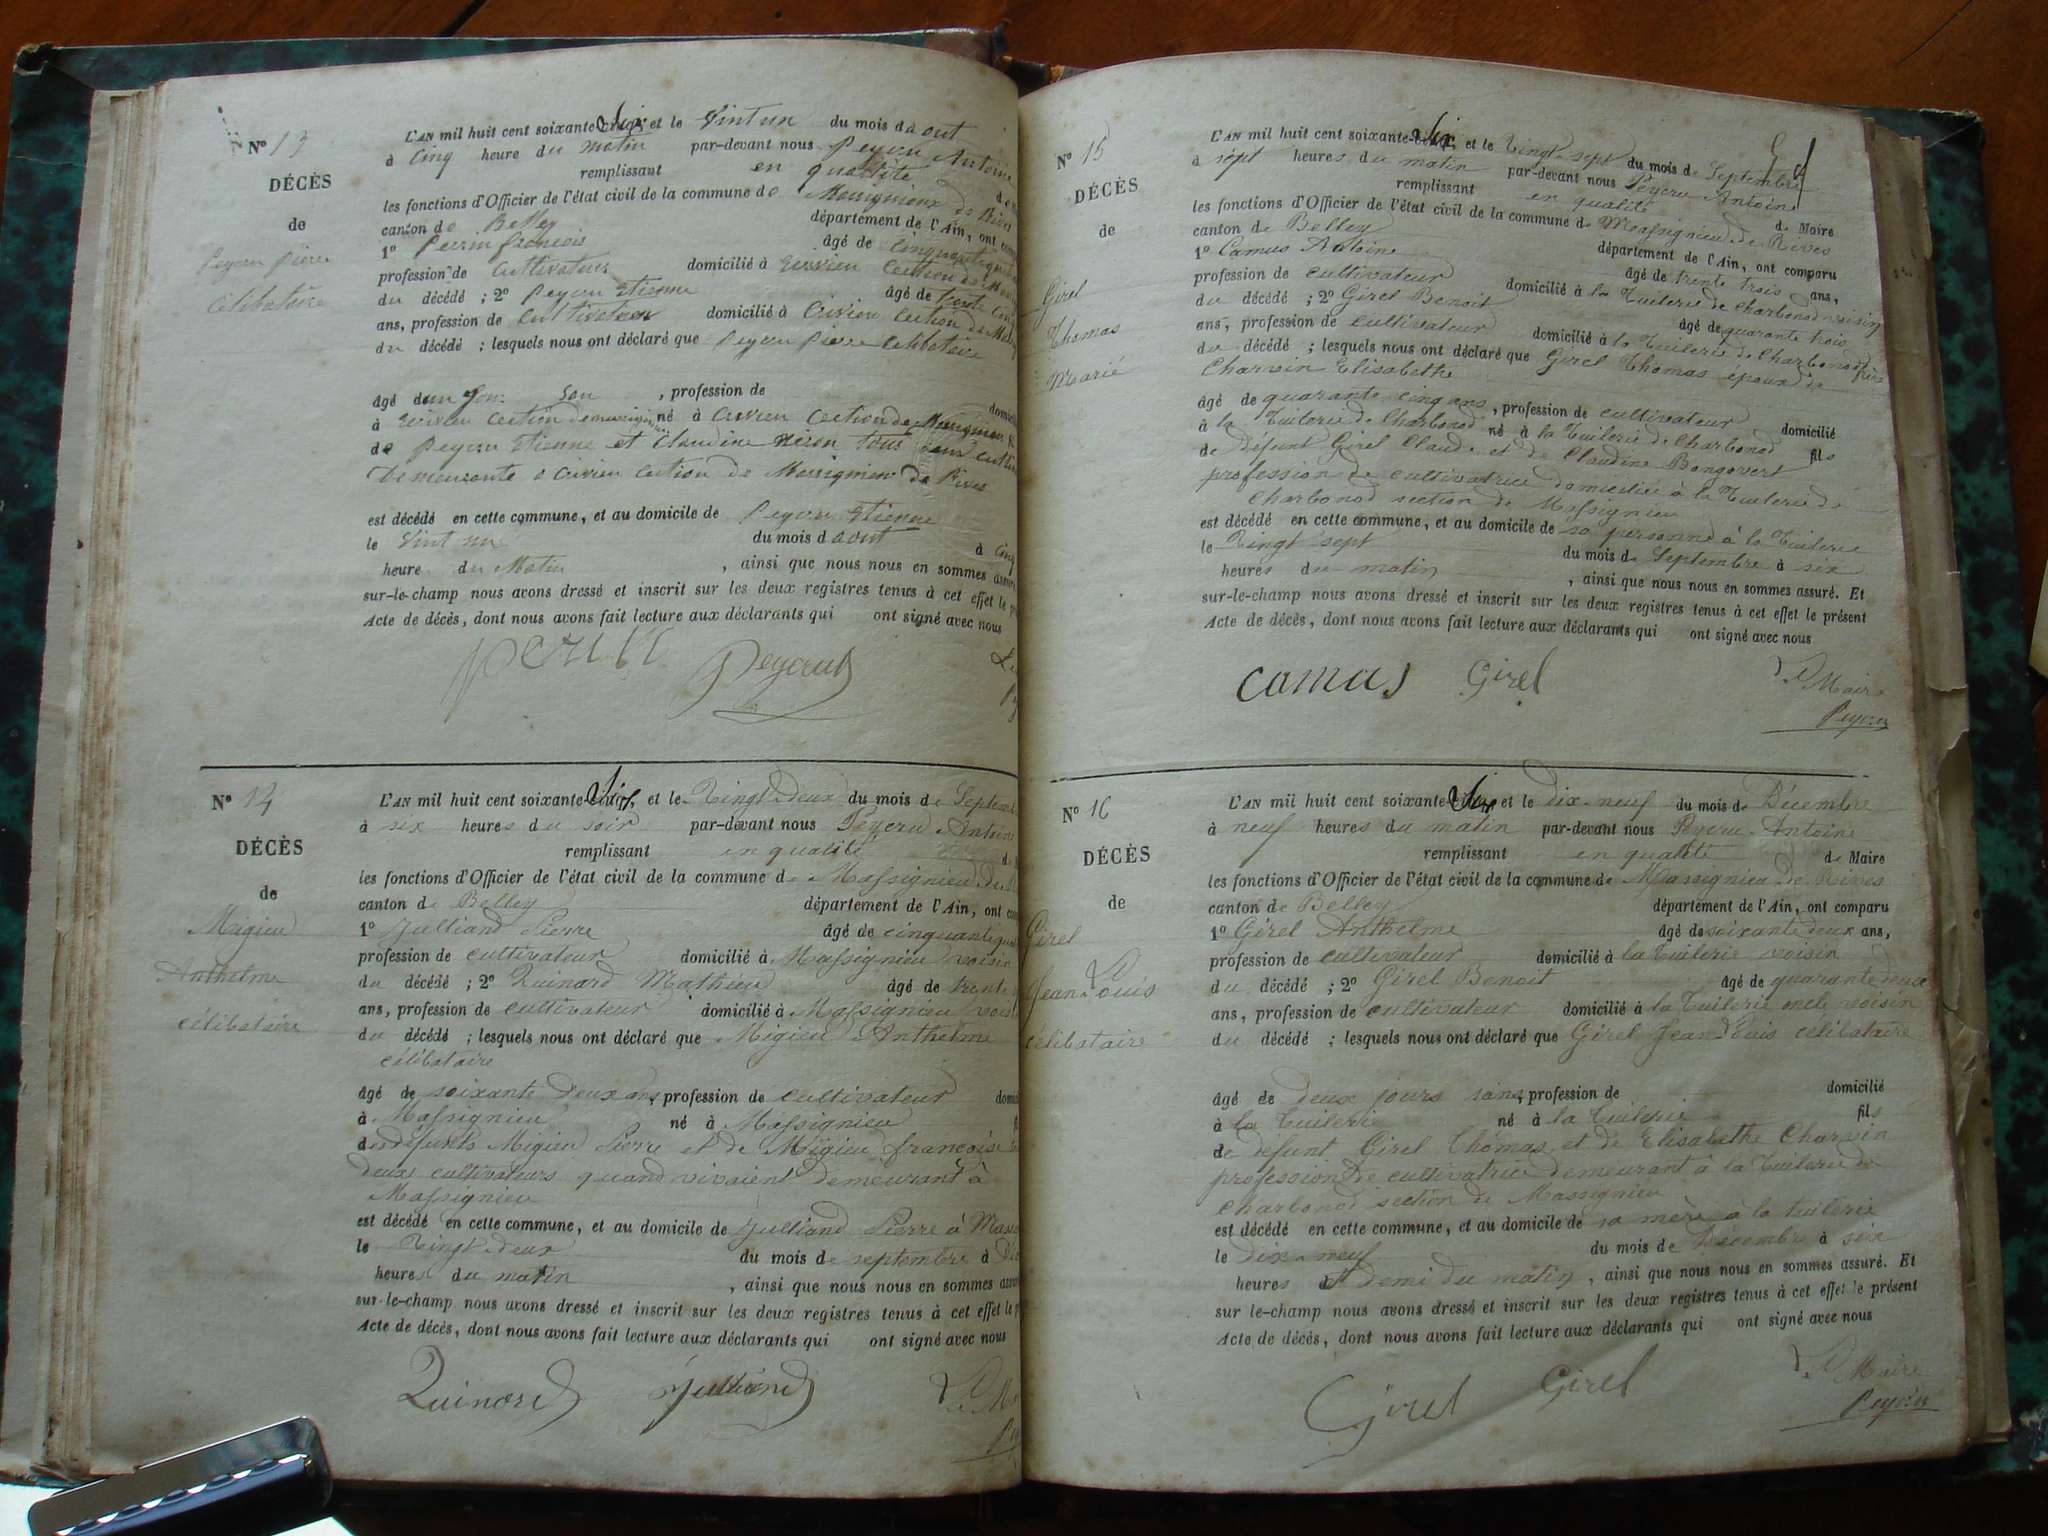 N° 13
DÉCÈS
de
Peycru Pierre
Célibataire
L'AN mil huit cent soixante-Six, et le Vint un du mois d aout
à Cinq heure du matin par-devant nous Peycru Antoine
remplissant en qualité de
les fonctions d'Officier de l'état civil de la commune de Massignieux de Rives
canton de Belley département de l'Ain, ont com
1° Perrin françois âgé de
profession de Cultivateur domicilié à
du décédé ; 2° Peycru Etienne âgé de
ans, profession de Cultivateur domicilié à
du décédé ; lesquels nous ont déclaré que Peycru Pierre Célibataire
âgé d'un jour San , profession de domici
à né à
de Peycru Etienne et Claudine tous deux
de Rives
est décédé en cette commune, et au domicile de Peycru Etienne
le Vint un du mois d aout à Cinq
heure du Matin , ainsi que nous nous en sommes assuré
sur-le-champ nous avons dressé et inscrit sur les deux registres tenus à cet effet le p
Acte de décès, dont nous avons fait lecture aux déclarants qui ont signé avec nous
Peycru
N° 14
DÉCÈS
de
Migieu
Anthelme
célibataire
L'AN mil huit cent soixante-Six, et le Vingt-deux du mois de Septem
à six heures du soir par-devant nous Peycru Antoine
remplissant en qualité
les fonctions d'Officier de l'état civil de la commune de Massignieu de
canton de Belley département de l'Ain, ont com
1° Julliand Pierre âgé de cinquante
profession de cultivateur domicilié à Massignieu voisin
du décédé ; 2° Quinard Mathieu âgé de trente
ans, profession de cultivateur domicilié à Massignieu
du décédé ; lesquels nous ont déclaré que Migieu Anthelme
célibataire
âgé de soixante deux ans, profession de cultivateur domic
à Massignieu né à Massignieu
des défunts Migieu Pierre et de Migieu françoise
deux cultivateurs quand vivaient demeurant à
Massignieu
est décédé en cette commune, et au domicile de Julliand Pierre à Mass
le Vingt-deux du mois de septembre à
heures du matin , ainsi que nous nous en sommes assu
sur-le-champ nous avons dressé et inscrit sur les deux registres tenus à cet effet le p
Acte de décès, dont nous avons fait lecture aux déclarants qui ont signé avec nous
Quinard Julliand
N° 15
DÉCÈS
de
Girel
Thomas
Marié
L'AN mil huit cent soixante-Six, et le Vingt-sept du mois de Septembre
à sept heures du matin par-devant nous Peycru Antoine
remplissant en qualité de Maire
les fonctions d'Officier de l'état civil de la commune de Massignieu de Rives
canton de Belley département de l'Ain, ont comparu
1° Camus Antoine âgé de trente trois ans,
profession de cultivateur domicilié à la Tuilerie de Charbonod voisin
du décédé ; 2° Girel Benoit âgé de quarante trois
ans, profession de cultivateur domicilié à la Tuilerie de Charbonod
du décédé ; lesquels nous ont déclaré que Girel Thomas époux de
Charvin Elisabethe
âgé de quarante cinq ans, profession de cultivateur domicilié
à la Tuilerie de Charbonod né à la Tuilerie de Charbonod fils
de Défunt Girel Claude et de Claudine
profession de cultivatrice domiciliée à la Tuilerie de
Charbonod section de Massignieu
est décédé en cette commune, et au domicile de sa personne à la Tuilerie
le Vingt sept du mois de Septembre à six
heures du matin , ainsi que nous nous en sommes assuré. Et
sur-le-champ nous avons dressé et inscrit sur les deux registres tenus à cet effet le présent
Acte de décès, dont nous avons fait lecture aux déclarants qui ont signé avec nous
Camus Girel
Le Maire
Peycru
N° 16
DÉCÈS
de
Girel
Jean Louis
célibataire
L'AN mil huit cent soixante-Six, et le dix-neuf du mois de Décembre
à neuf heures du matin par-devant nous Peycru Antoine
remplissant en qualité de Maire
les fonctions d'Officier de l'état civil de la commune de Massignieu de Rives
canton de Belley département de l'Ain, ont comparu
1° Girel Anthelme âgé de soixante deux ans,
profession de cultivateur domicilié à la Tuilerie voisin
du décédé ; 2° Girel Benoit âgé de quarante deux
ans, profession de cultivateur domicilié à la Tuilerie oncle voisin
du décédé ; lesquels nous ont déclaré que Girel Jean Louis célibataire
âgé de deux jours sans, profession de domicilié
à la Tuilerie né à la Tuilerie fils
de défunt Girel Thomas et de Elisabethe Charvin
profession de cultivatrice demeurant à la Tuilerie de
Charbonod section de Massignieu
est décédé en cette commune, et au domicile de sa mère à la tuilerie
le Dix-neuf du mois de Décembre à six
heures et demi du matin, ainsi que nous nous en sommes assuré. Et
sur le-champ nous avons dressé et inscrit sur les deux registres tenus à cet effet le présent
Acte de décès, dont nous avons fait lecture aux déclarants qui ont signé avec nous
Girel Girel
Le Maire
Peycru